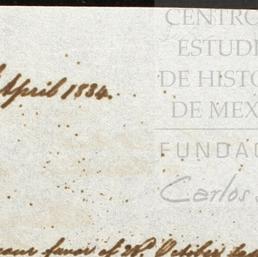 CENTRO
ESTUDI
DE HISTO
DE MEX
FUNDAC
Carlos
April 1834.
favor of 28th. October